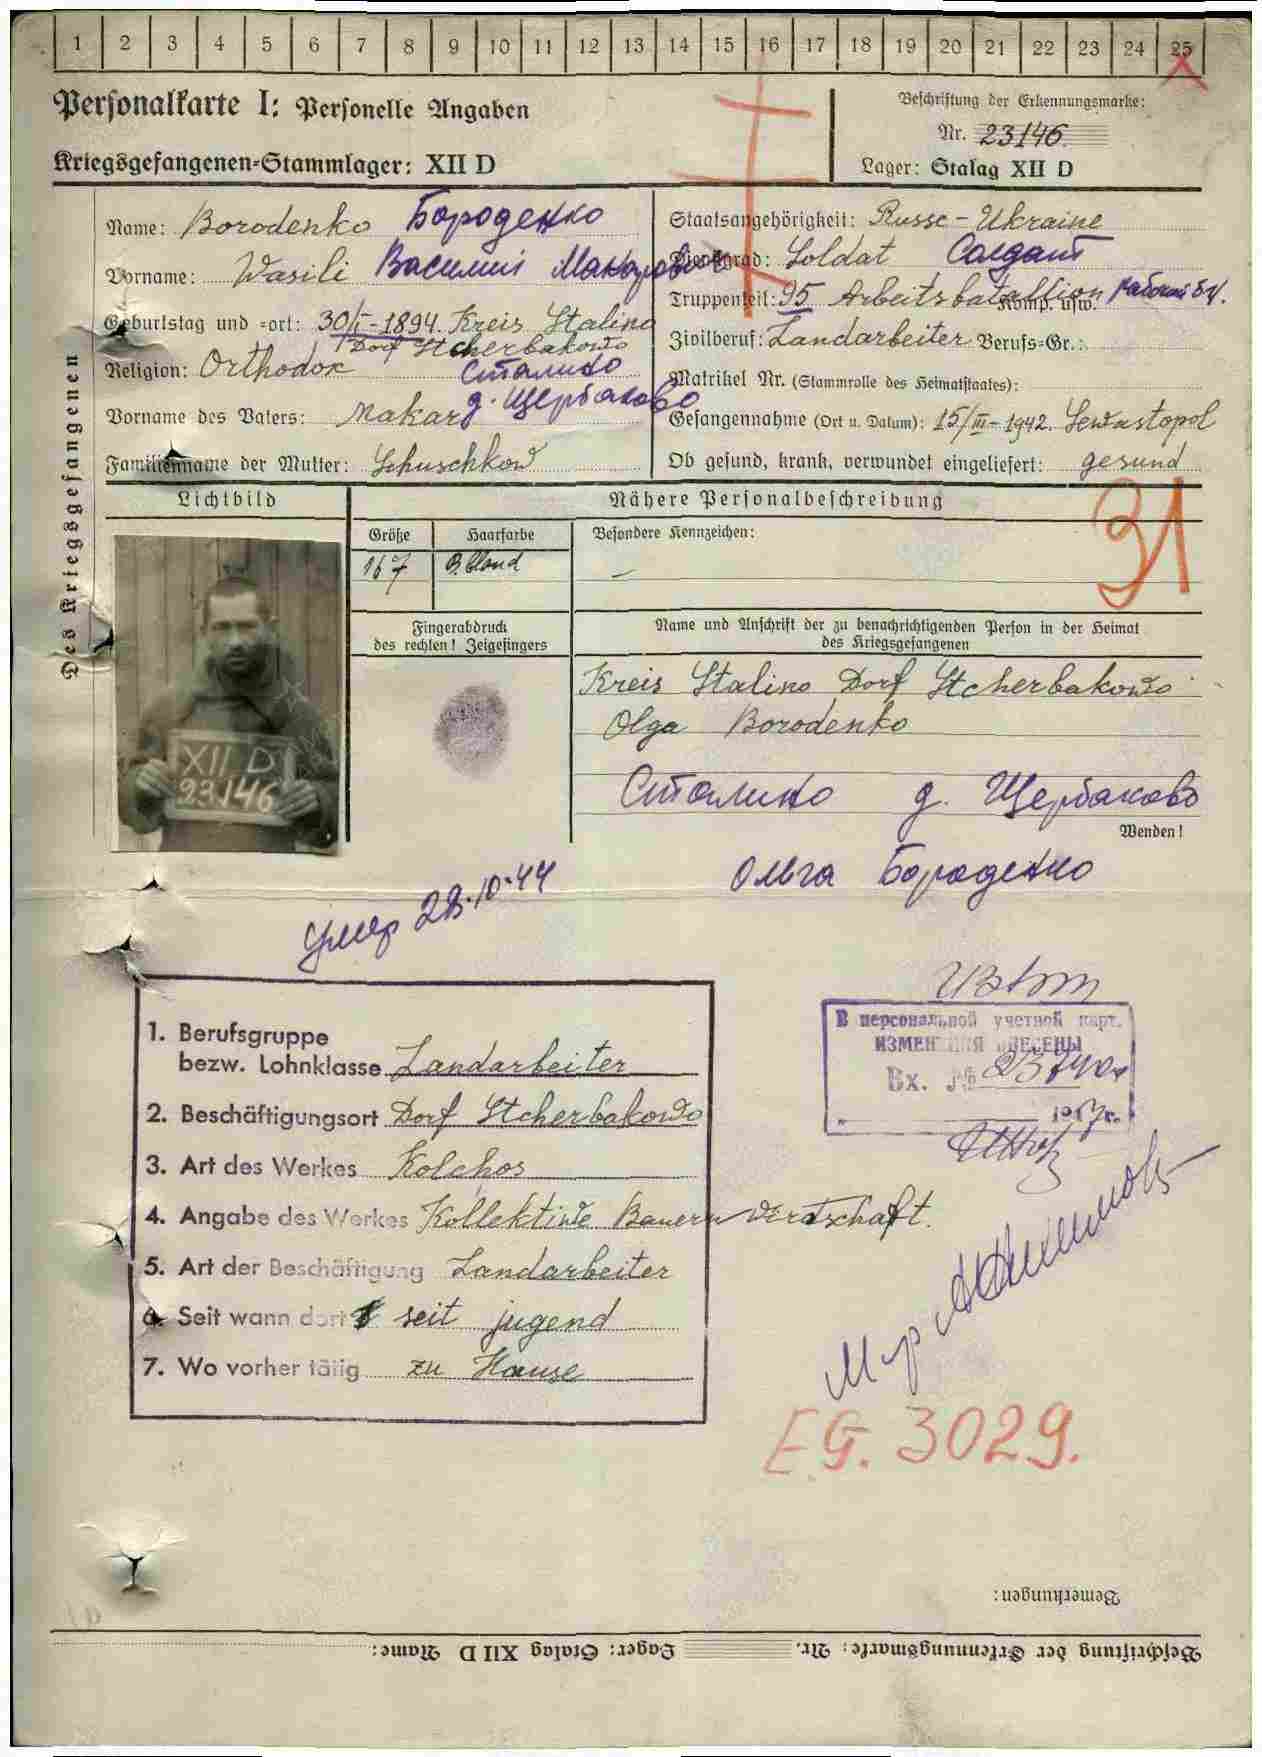 1 2 3 4 5 6 7 8 9 10 11 12 13 14 15 16 17 18 19 20 21 22 23 24 25
Personalkarte I: Personelle Angaben
Kriegsgefangenen-Stammlager: XII D
Beschriftung der Erkennungsmarke:
Nr. 23146.
Lager: Stalag XII D
Des Kriegsgefangenen
Name: Borodenko Бороденко
Vorname: Wasili Василий Макарович
Geburtstag und -ort: 30/I-1894. Kreis Stalino
Dorf Stcherbakowo
Religion: Orthodox Сталино
д. Щербаково
Vorname des Vaters: Makar
Familienname der Mutter: Schuschkow
Staatsangehörigkeit: Russe-Ukraine
Dienstgrad: Soldat Солдат
Truppenteil: 95 Arbeitsbatallion Komp. usw. рабочий бат.
Zivilberuf: Landarbeiter Berufs-Gr.:
Matrikel Nr. (Stammrolle des Heimatstaates):
Gefangennahme (Ort u. Datum): 15/III-1942. Sewastopol
Ob gesund, krank, verwundet eingeliefert: gesund
Lichtbild
Nähere Personalbeschreibung
Größe Haarfarbe Besondere Kennzeichen:
167 D. blond –
31
Fingerabdruck
des rechten! Zeigefingers
Name und Anschrift der zu benachrichtigenden Person in der Heimat
des Kriegsgefangenen
XII D
23146
Kreis Stalino Dorf Stcherbakowo
Olga Borodenko
Сталино д. Щербаково
Wenden!
Ольга Бороденко
Умер 28.10.44
1. Berufsgruppe
bezw. Lohnklasse Landarbeiter
2. Beschäftigungsort Dorf Stcherbakowo
3. Art des Werkes Kolchos
4. Angabe des Werkes Kollektiwe Bauernwirtschaft.
5. Art der Beschäftigung Landarbeiter
6. Seit wann dort seit jugend
7. Wo vorher tätig zu Hause
В персональной учетной карт.
ИЗМЕНЕНИЯ ВНЕСЕНЫ
Вх. №
E.G. 3029.
Bemerkungen:
Beschriftung der Erkennungsmarke: Nr. Lager: Stalag XII D Name: